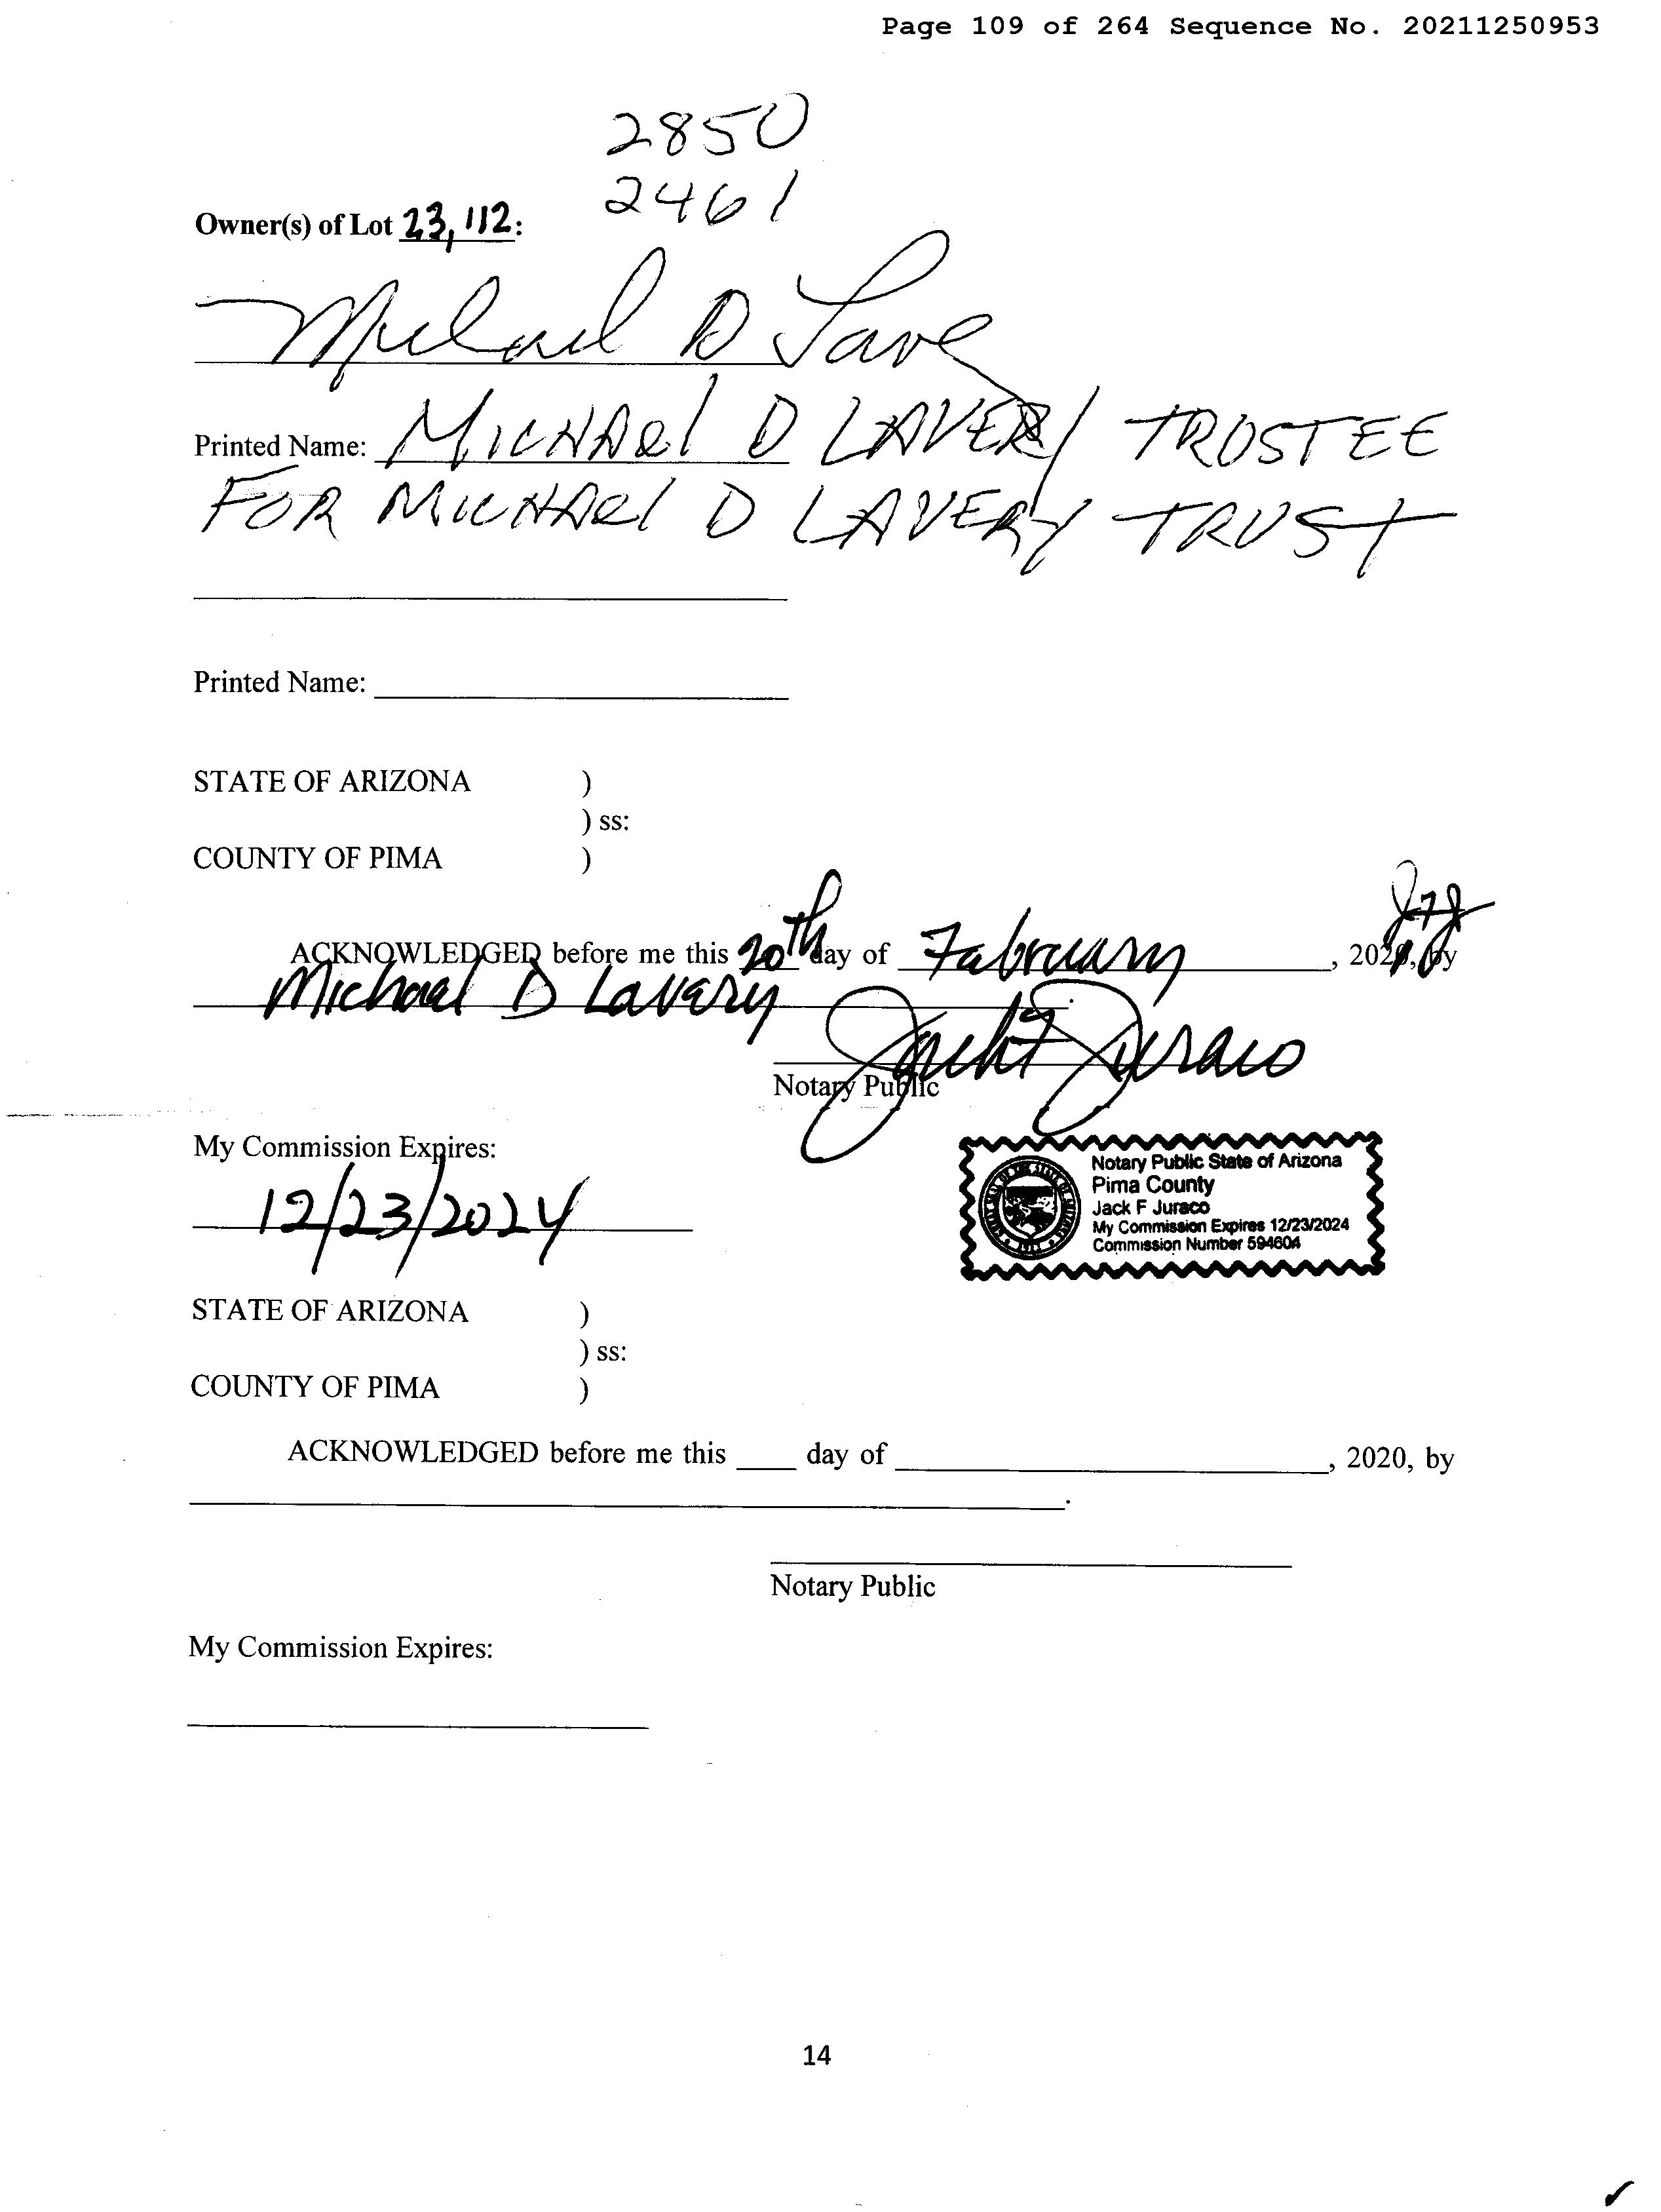 Page 109 of 264 Sequence No. 20211250953
2850
2461
Owner(s) of Lot 23, 112:
Michael D Lavery
Printed Name: MICHAEl D LAVERY TRUSTEE
FOR MICHAEl D LAVERY TRUST
Printed Name:
STATE OF ARIZONA )
) ss:
COUNTY OF PIMA )
JFJ
ACKNOWLEDGED before me this 20th day of February, 2021, by
Michael D Lavery
Jack F Juraco
Notary Public
My Commission Expires:
12/23/2024
Notary Public State of Arizona
Pima County
Jack F Juraco
My Commission Expires 12/23/2024
Commission Number 594604
STATE OF ARIZONA )
) ss:
COUNTY OF PIMA )
ACKNOWLEDGED before me this ____ day of ____, 2020, by
Notary Public
My Commission Expires:
14